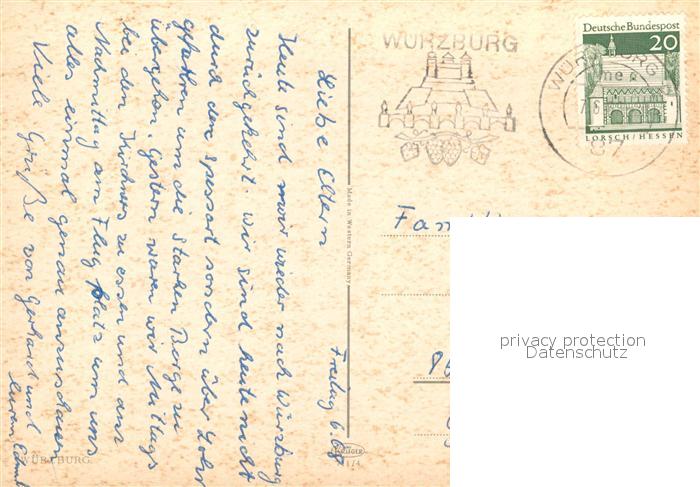 WÜRZBURG
Deutsche Bundespost
20
LORSCH/HESSEN
WÜRZBURG
Freitag
Liebe Eltern
Heute sind wir wieder nach Würzburg
zurückgekehrt. Wir sind heute nicht
durch den Spessart sondern über Lohr
gefahren um die Starken Berge zu
umgehen. Gestern waren wir Mittags
bei den Kirdners zu essen und am
Nachmittag am Flugplatz um uns
alles einmal genau anzuschauen
Viele Grüße von Gerhard und
Made in Western Germany
KRÜGER
WÜRZBURG.
Fam
privacy protection
Datenschutz